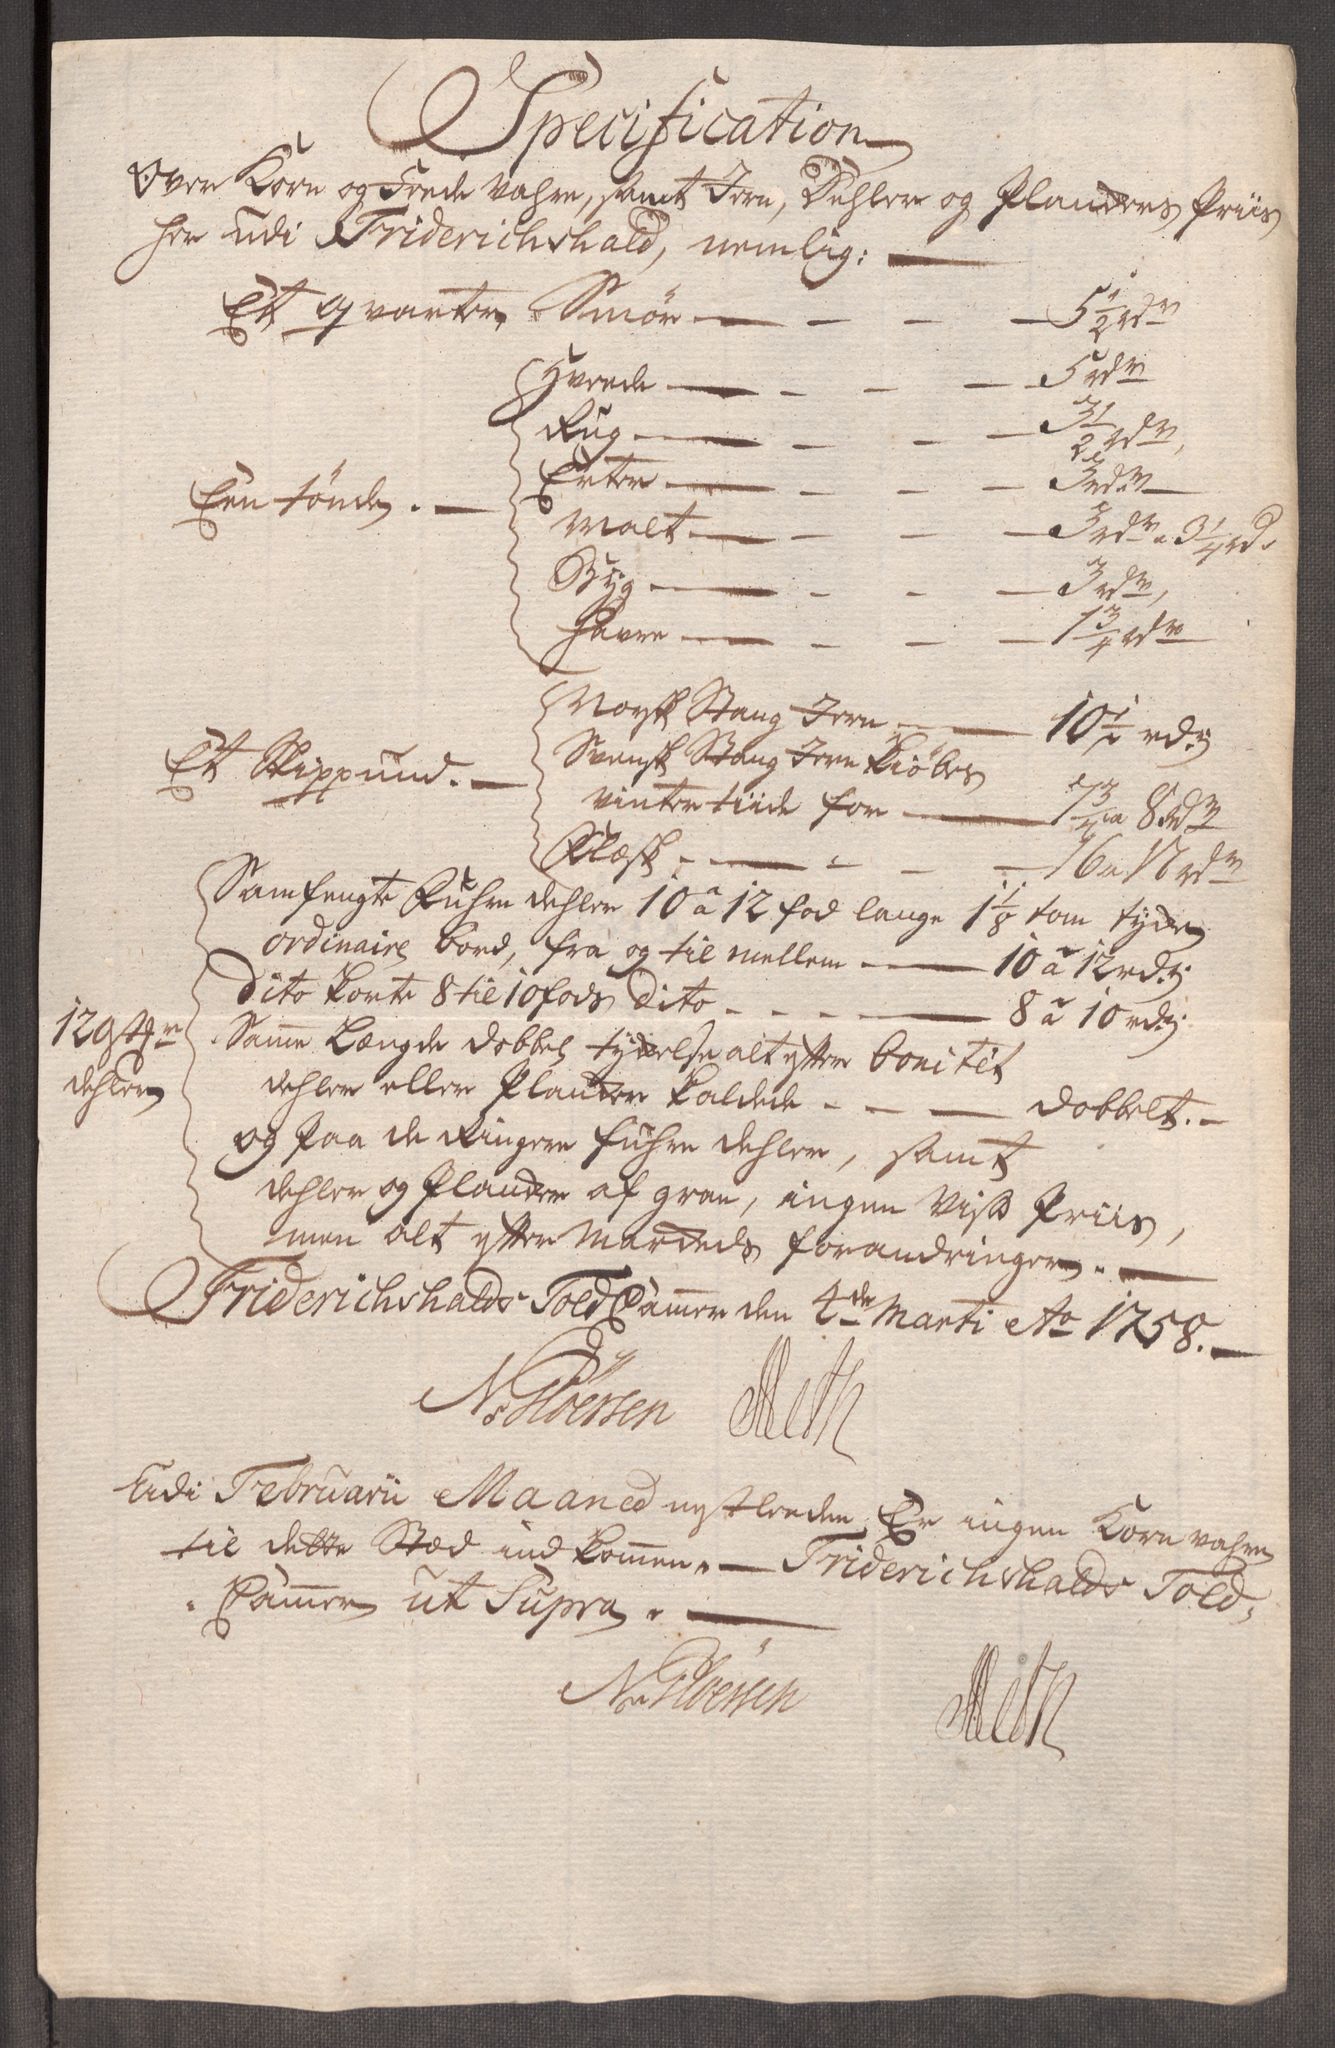 Specification
Over Korn og Fede Vahre, samt Jern, Dehler og Planckers Priis
her udi Friderichshald, nemlig:
Et qvarteer Smör — 5 1/2 rdr
Hvede — 5 rdr
Rug — 3 1/2 rdr,
Erter — 3 rdr
Een tönde. — Malt — 3 rdr a 3 1/4 rd.
Byg — 3 rdr,
Havre — 1 3/4 rdr
Norsk Stang Jern — 10 1/2 rd:
Et Skippund. — Svensk Stang Jern kiöbes
vinter tiide for — 7 3/4 a 8 rdr
Flæsk — 16 a 17 rdr
Samfengte Fuhre dehler 10 a 12 fod lange 1 1/8 tom tycke
ordinaire bord, fra og til mellem — 10 a 12 rd:
Dito korte 8 til 10 fods Dito — 8 a 10 rd:
12 qttr Samme Længde dobbel tyckelse alt efter bonitet
dehler dehler eller Plancker kaldede — dobbelt. —
og paa de Ringere fuhre dehler, samt
dehler og Plancker af gran, ingen Viss Priis,
men alt efter Marckeds forandringer. —
Friderichshalds Told Cammer den 4de Marti Ao 1758. —
Udi Februarii Maaned nestleeden Er ingen Korn vahre
til dette Stæd indkommen. — Friderichshalds Told-
Cammer ut Supra. —